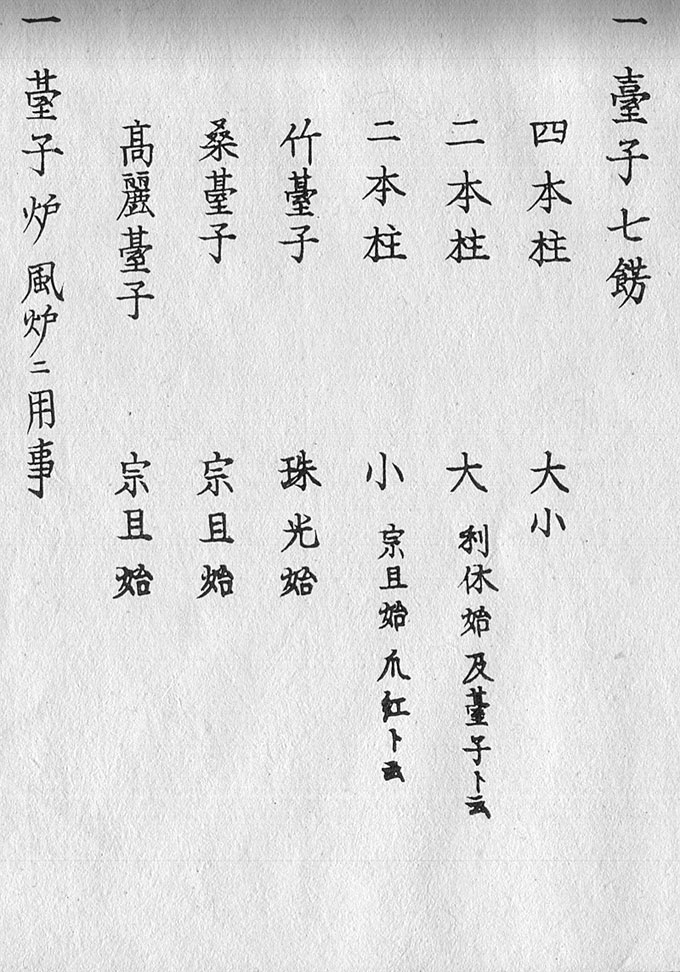 一 臺子七餝
四本柱 大小
二本柱 大 利休始及臺子ト云
二本柱 小 宗旦始爪紅ト云
竹臺子 珠光始
桑臺子 宗旦始
髙麗臺子 宗旦始
一 臺子炉風炉ニ用事